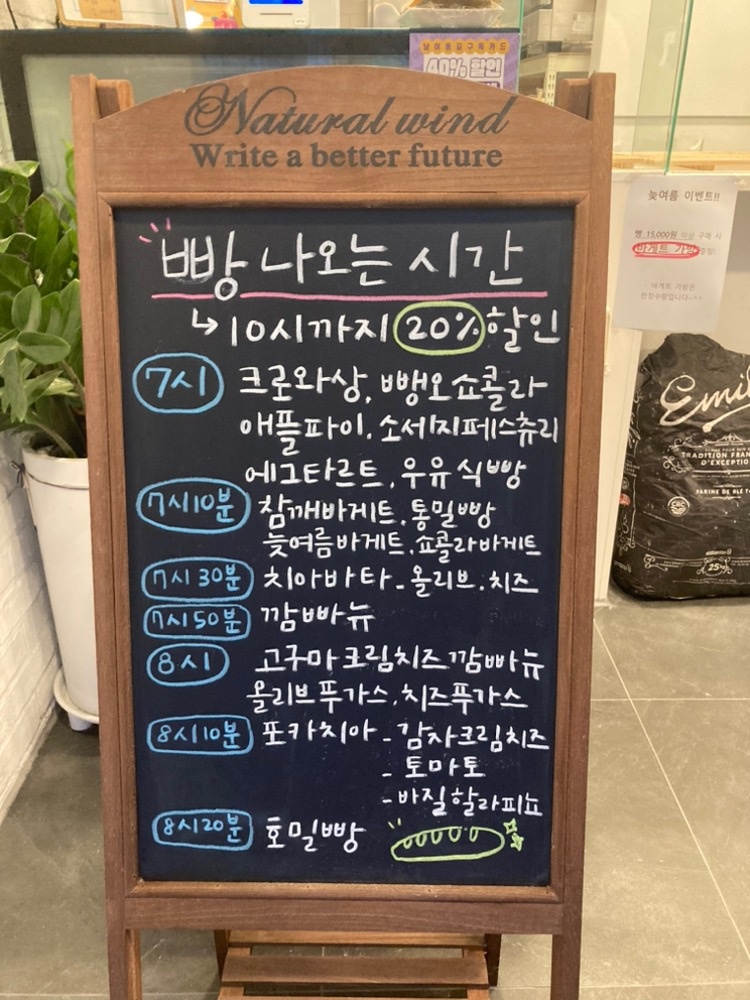 40% 할인
Natural wind
Write a better future
빵 나오는 시간
↳10시까지 20% 할인
7시 크로와상, 뺑오쇼콜라
애플파이, 소세지페스츄리
에그타르트, 우유식빵
7시10분 참깨바게트, 통밀빵
늦여름바게트, 쇼콜라바게트
7시30분 치아바타 - 올리브, 치즈
7시50분 깜빠뉴
8시 고구마크림치즈깜빠뉴
올리브푸가스, 치즈푸가스
8시10분 포카치아 - 감자크림치즈
- 토마토
- 바질할라피뇨
8시20분 호밀빵
늦여름 이벤트!!
빵 15,000원 이상 구매 시
바게트 가방 증정!
바게트 가방은
한정수량입니다~^^
TRADITION FRAN
D'EXCEPTIO
FARINE DE BLÉ T
25kg